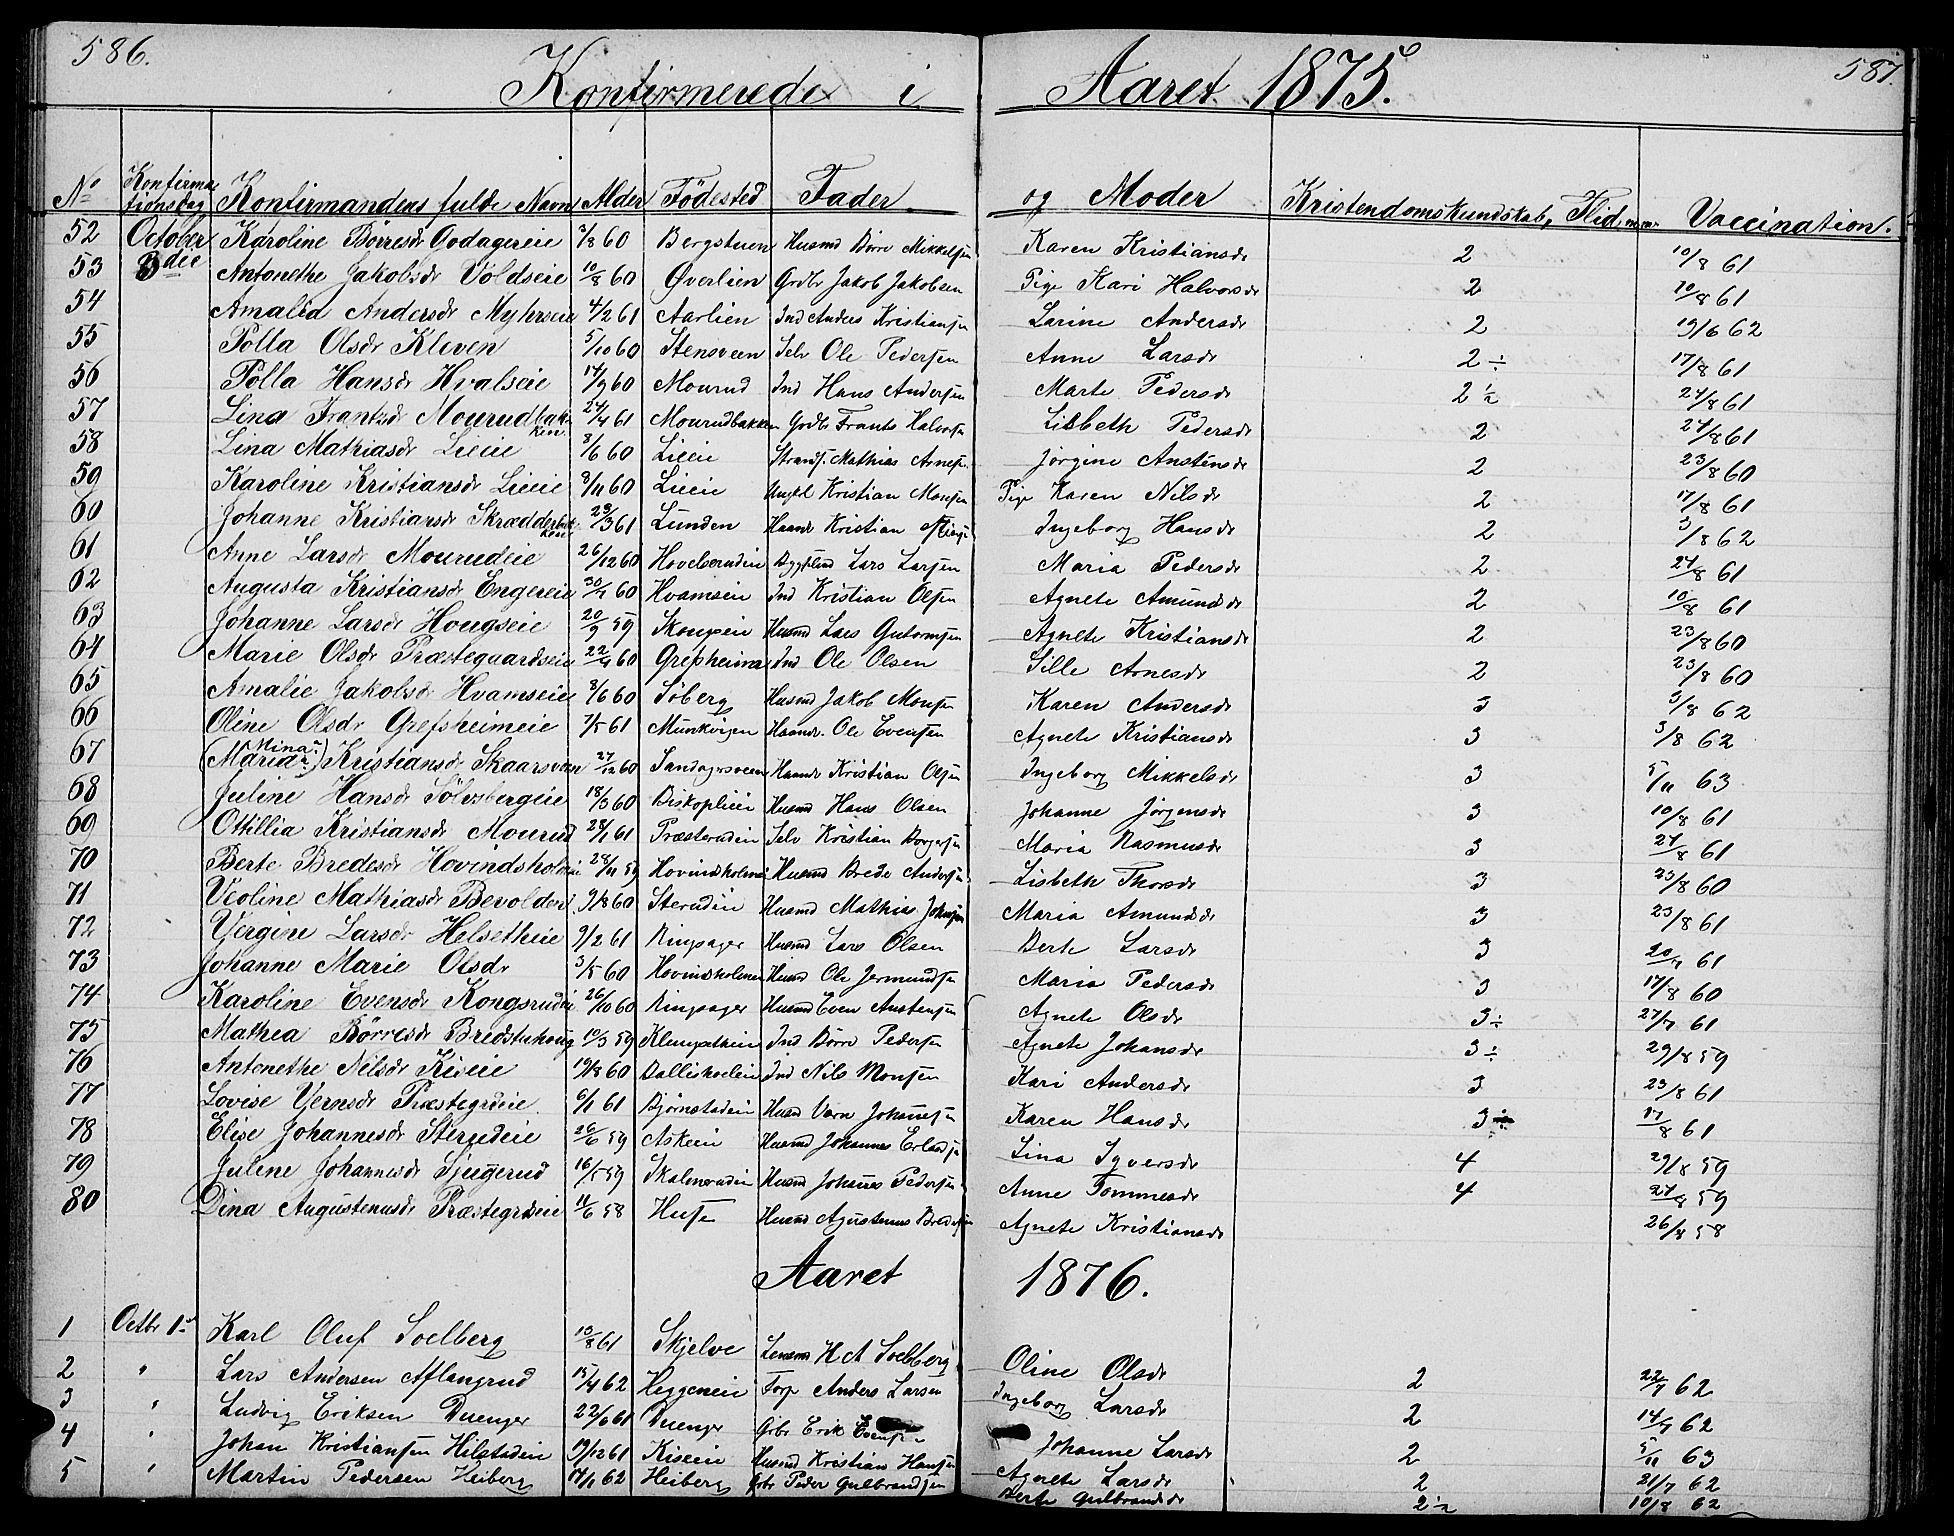 586.
587.
Konfirmerede i Aaret 1875.
No Konfirmationsdag Konfirmandens fulde Navn Alder Födested Fader og Moder Kristendomskundskab, Flid m.m. Vaccination.
52 October Karoline Börresdr Godagereie 3/8 60 Bergstuen Husmd Börre Mikkelsen Karen Kristiansdr 2 10/8 61
53 3die Antonethe Jakobsdr Voldseie 10/8 60 Øverlien Grdbr Jakob Jakobsen Pige Kari Halvorsdr 2 10/8 61
54 Amalia Andersdr Myhrseie 4/2 61 Aarlien Ind Anders Kristiansen Larine Andersdr 2 19/6 62
55 Polla Olsdr Kleven 5/10 60 Stensveen Selv Ole Pedersen Anne Larsdr 2÷ 17/8 61
56 Polla Hansdr Hvalseie 14/9 60 Mourud Ind Hans Andersen Marte Pedersdr 2½ 24/8 61
57 Lina Frantzdr Mourudbakken 24/4 61 Mourudbakken Grdbr Frants Halvorsen Lisbeth Pedersdr 2 24/8 61
58 Lina Mathiasdr Lieie 3/6 60 Lieie Strands. Mathias Arnesen Jörgine Anstensdr 2 23/8 60
59 Karoline Kristiansdr Lieie 8/11 60 Lieie Ungkl Kristian Monsen Pige Karen Nilsdr 2 17/8 61
60 Johanne Kristiansdr Skrædderbakken 23/3 61 Lunden Haandv Kristian Ingeborg Hansdr 2 3/8 62
61 Anne Larsdr Mourudeie 26/12 60 Hovelsrudeie Lars Larsen Maria Pedersdr 2 24/8 61
62 Augusta Kristiansdr Engereie 30/7 60 Hvamseie Ind Kristian Olsen Agnete Amundsdr 2 10/8 61
63 Johanne Larsdr Hougseie 20/9 59 Skoupeie Husmd Lars Gutormsen Agnete Kristiansdr 2 23/8 60
64 Marie Olsdr Præstegaardseie 22/4 60 Grefsheima Ind Ole Olsen Sille Arnesdr 2 23/8 60
65 Amalie Jakobsdr Hvamseie 8/6 60 Söberg Husmd Jakob Monsen Karen Andersdr 3 3/8 62
66 Oline Olsdr Grefsheimeie 7/5 61 Munkvigen Haandv. Ole Evensen Agnete Kristiansdr 3 3/8 62
67 (Maria Mina) Kristiansdr Skaarsveen 27/12 60 Sandagersveen Haandv Kristian Olsen Ingeborg Mikkelsdr 3 5/11 63
68 Juline Hansdr Sölvsbergeie 18/3 60 Biskoplieie Husmd Hans Olsen Johanne Jörgensdr 3 10/8 61
69 Ottillia Kristiansdr Mourud 28/1 61 Præsterudeie Selv Kristian Borgersen Maria Rasmusdr 3 24/8 61
70 Berte Bredesdr Hovindsholmeie 28/11 59 Hovindsholmeie Husmd Brede Andersen Lisbeth Thorsdr 3 23/8 60
71 Veoline Mathiasdr Bevolden 9/8 60 Sterudeie Husmd Mathias Johnsen Maria Amundsdr 3 23/8 61
72 Virgine Larsdr Helsetheie 9/2 61 Ringsager Husmd Lars Olsen Berte Larsdr 3 20/7 61
73 Johanne Marie Olsdr 3/5 60 Hovindsholmeie Husmd Ole Jermundsen Maria Pedersdr 3 17/8 60
74 Karoline Evensdr Kongsrudeie 26/10 60 Ringsager Husmd Even Austensen Agnete Olsdr 3÷ 27/7 61
75 Mathea Börresdr Bredstuhoug 10/3 59 Klempetheie Ind Börre Pedersen Agnete Johansdr 3÷ 29/8 59
76 Antonethe Nilsdr Kiseie 19/8 60 Ballisholeie Ind Nils Monsen Kari Andersdr 3 23/8 61
77 Lovise Vernsdr Præstegrdeie. 6/1 61 Bjørnstadeie Husmd Vern Johansen Karen Hansdr 3÷ 17/8 61
78 Elise Johannesdr Sterudeie 26/6 59 Askeeie Husmd Johannes Erlandsen Lina Syversdr 4 29/8 59
79 Juline Johannesdr Sjugerud 16/5 59 Skalmerudeie Husmd Johannes Pedersen Anne Tommesdr 4 24/8 59
80 Dina Augustenusdr Præstegrdseie 11/6 58 Husmd Agustenus Bredesen Agnete Kristiansdr 26/8 58
Aaret 1876.
1 Octbr 1. Karl Oluf Soelberg 13/8 61 Skjelve Lensmd H A Soelberg Oline Olsdr 2 22/7 62
2 " Lars Andersen Aflangrud 15/4 62 Heggeneie Torp Anders Larsen Ingeborg Larsdr 2 14/7 62
3 " Ludvig Eriksen Duenger 22/6 61 Duenger Grbr Erik Evensen Johanne Larsdr 2 5/11 63
4 " Johan Kristiansen Hilstadeie 19/12 61 Kiseeie Husmd Kristian Hansen Agnete Larsdr 2 21/7 62
5 " Martin Pedersen Heiberg 14/1 62 Heiberg Grbr Peder Gulbrandsen Berte Gulbrandsdr 2½ 10/8 62